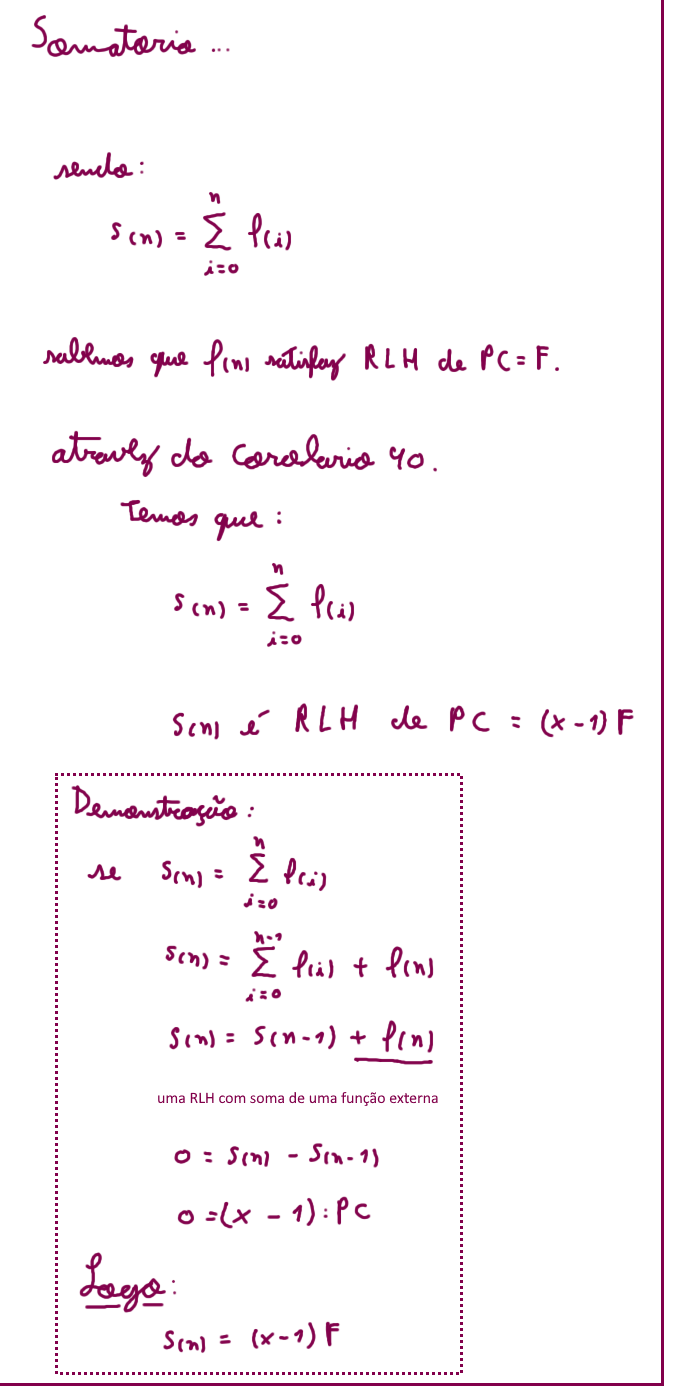 Somatória ...
sendo:
s(n) = n∑i=0 f(i)
sabemos que f(n) satisfaz RLH de PC=F.
atravez do Corolario 40.
Temos que:
s(n) = n∑i=0 f(i)
s(n) é RLH de PC = (x-1) F
Demonstração:
se s(n) = n∑i=0 f(i)
s(n) = n-1∑i=0 f(i) + f(n)
s(n) = s(n-1) + f(n)
uma RLH com soma de uma função externa
0 = s(n) - s(n-1)
0 =(x - 1): PC
Logo:
s(n) = (x-1) F